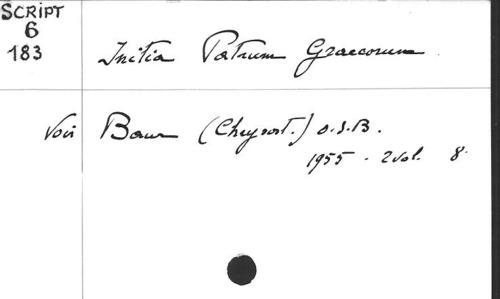 SCRIPT
6
183
Initia Patrum Graecorum
Voir Baur (Chrysost.) O.S.B.
1955 . 2 vol. 8